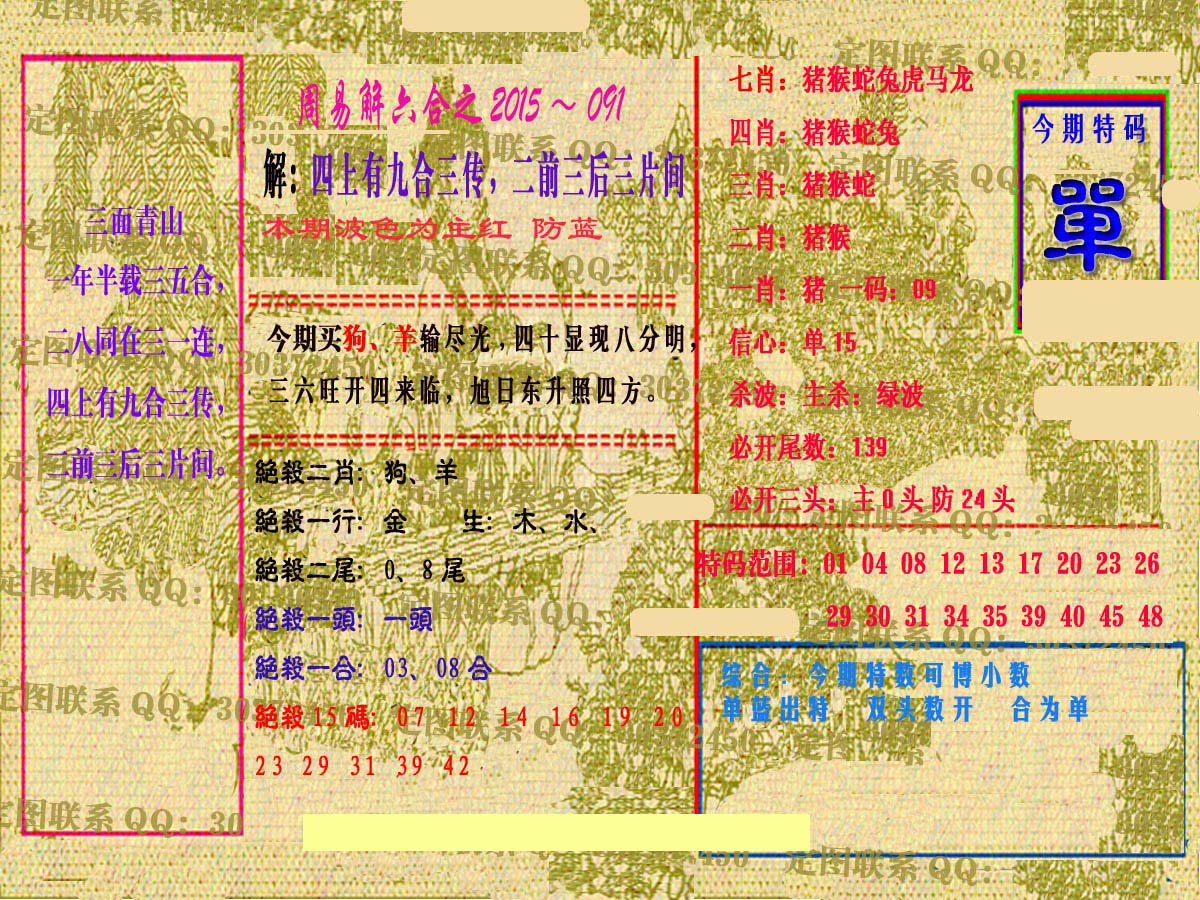 三面青山
一年半载三五合，
二八同在三一连，
四上有九合三传，
二前三后三片间。
周易解六合之 2015～091
解：四上有九合三传，二前三后三片间
本期波色为主红 防蓝
今期买狗、羊输尽光，四十显现八分明，
三六旺开四来临，旭日东升照四方。
絕殺二肖：狗、羊
絕殺一行：金 生：木、水、
絕殺二尾：0、8 尾
絕殺一頭：一頭
絕殺一合：03、08 合
絕殺 15 碼：07 12 14 16 19 20
23 29 31 39 42
七肖：猪猴蛇兔虎马龙
四肖：猪猴蛇兔
三肖：猪猴蛇
二肖：猪猴
一肖：猪 一码：09
信心：单 15
杀波：主杀：绿波
必开尾数：139
必开三头：主 0 头 防 24 头
今期特码
單
特码范围：01 04 08 12 13 17 20 23 26
29 30 31 34 35 39 40 45 48
综合：今期特数可博小数
单蓝出特 双头数开 合为单
定图联系 QQ：